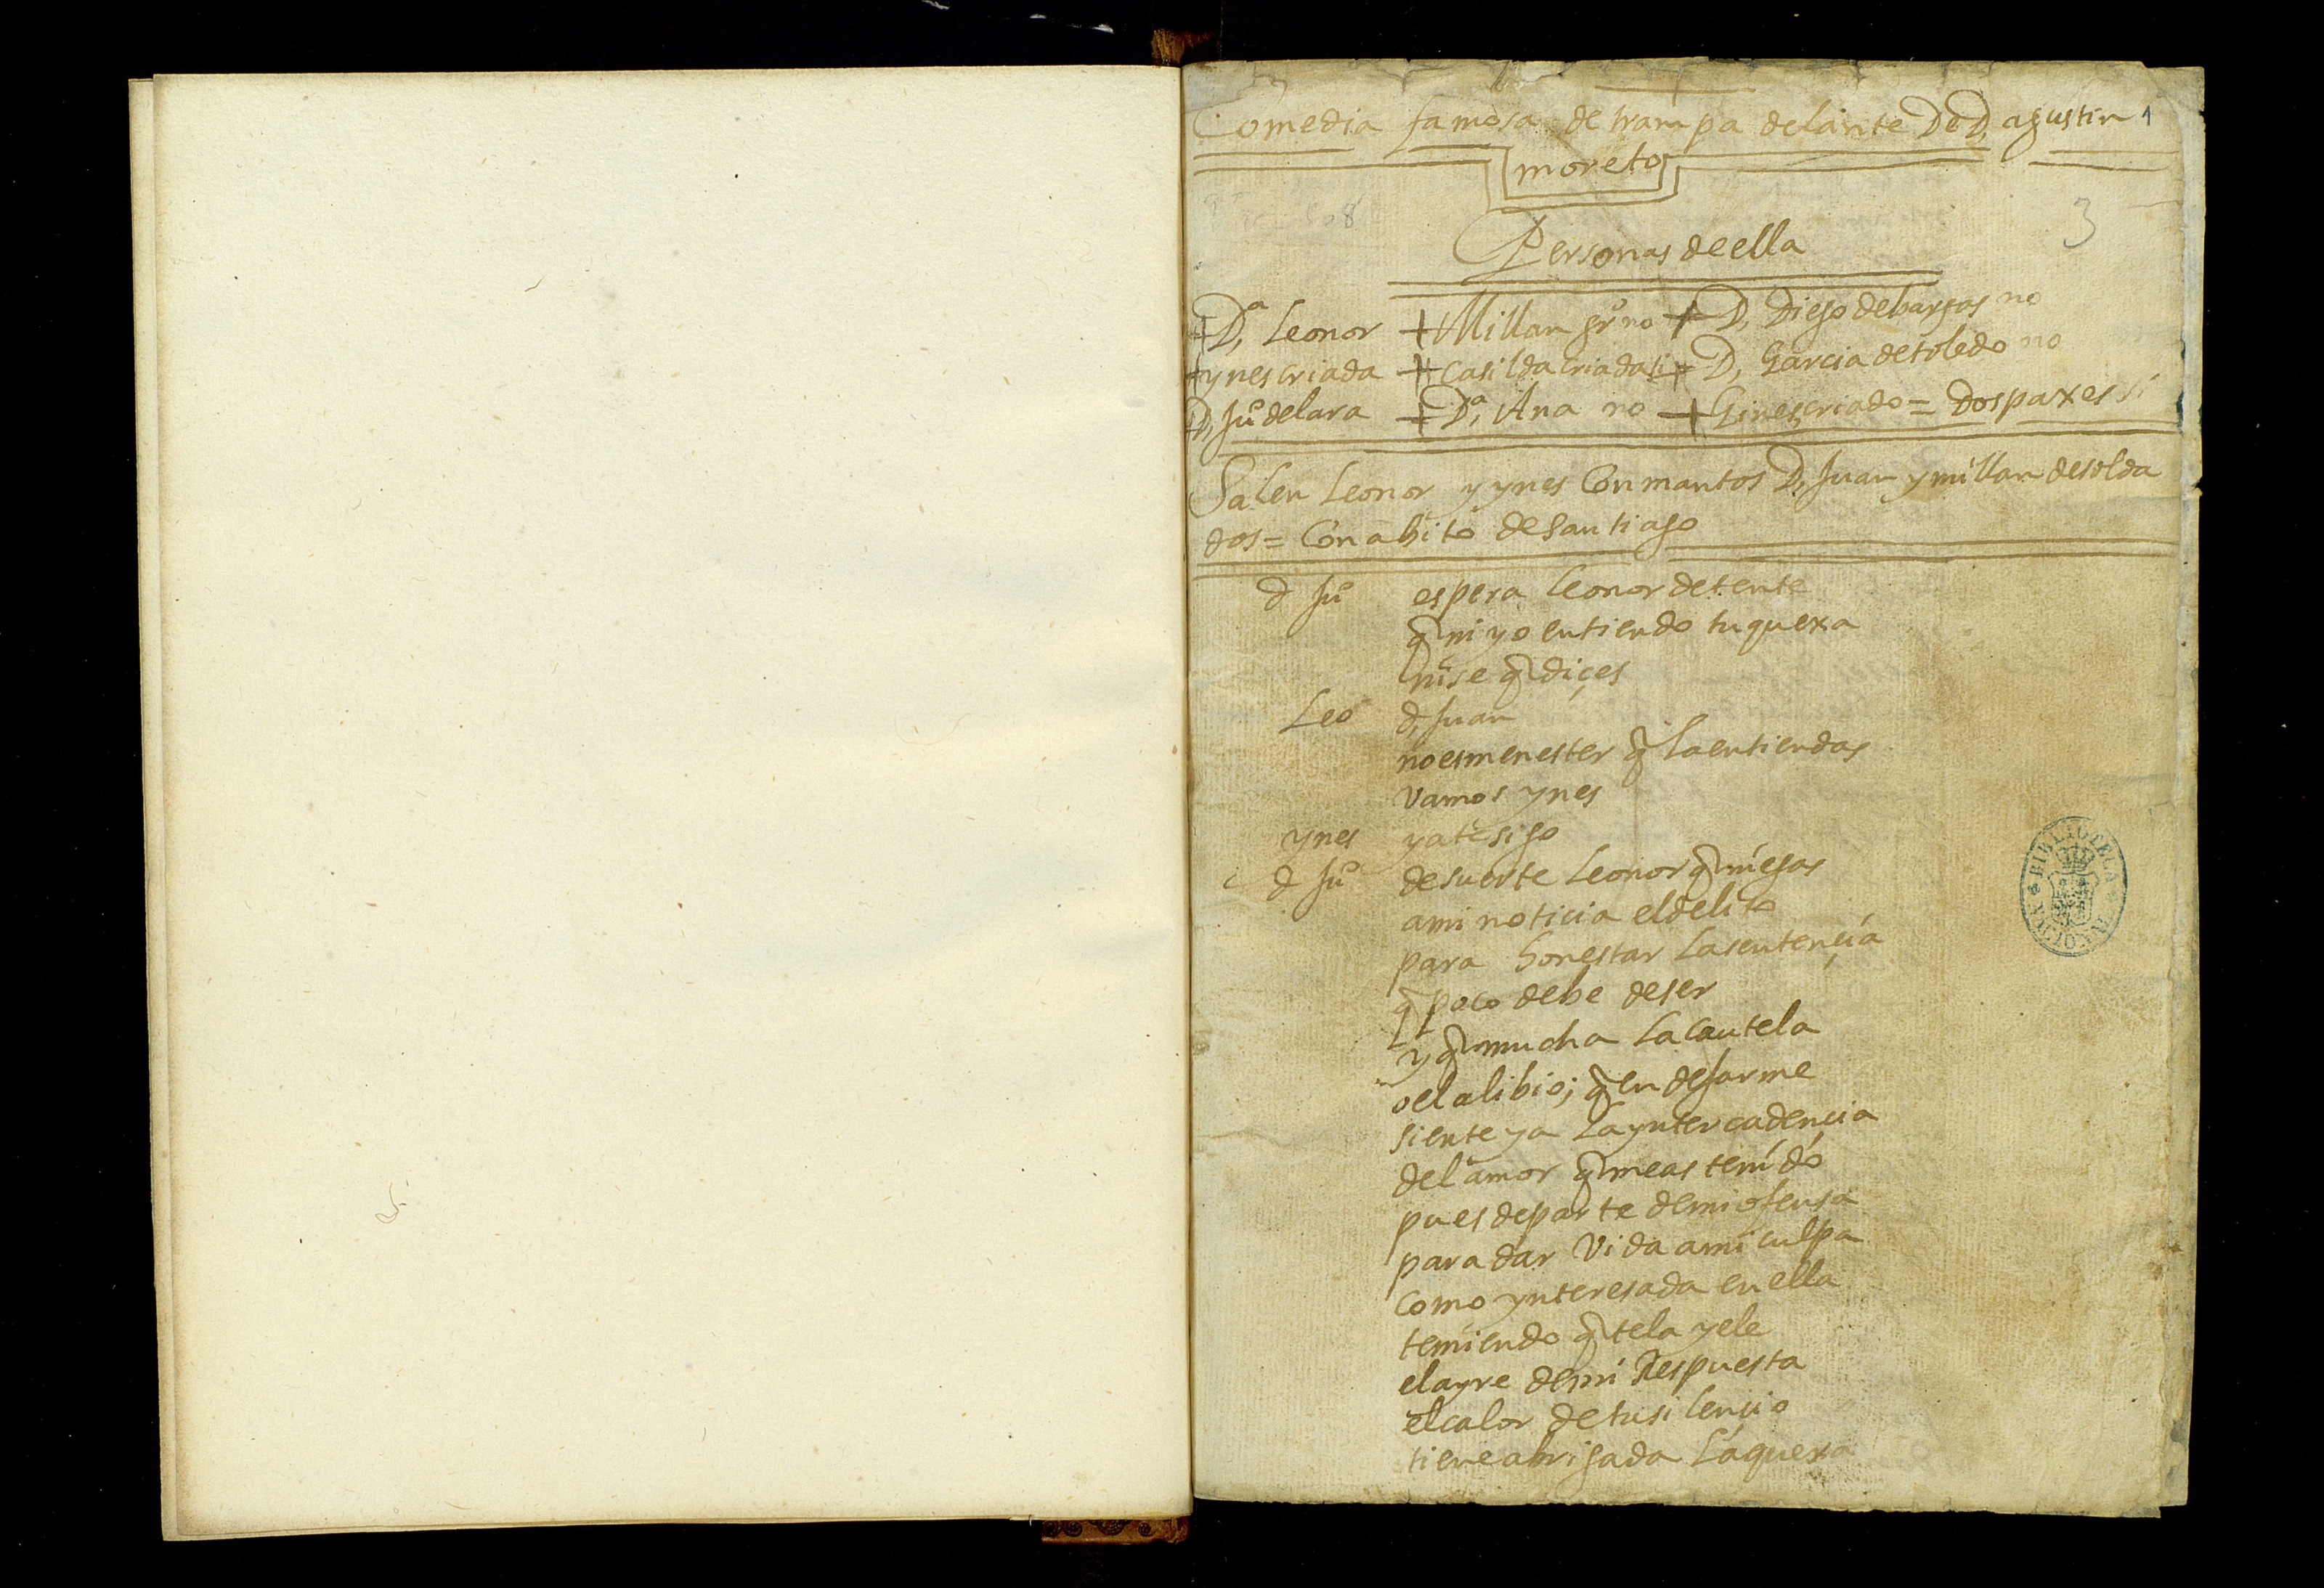 Comedia famosa de trampa delante De D, agustin 1
moreto
3
Personas de ella
Dª, Leonor + Millan + D, Diego de bargas no
ynes criada + casilda criada si D, Garcia de toledo no
D, Juº de lara + Dª, Ana no + Gines criado = dos paxes si
Salen Leonor y ynes Con mantos D, Juan y millan de solda
dos = Con abito de santiago
d Juº espera leonor detente
q̃ ni yo entiendo tu quexa
ni se q̃ diçes
Leo d, Juan
no es menester q̃ la entiendas
vamos ynes
ynes ya te sigo
d Juº de suerte leonor q̃ niegas
a mi noticia el delito
para honestar la sentençia
q̃ poco debe de ser
y q̃ mucha la cautela
o el alibio; q̃ en dejarme
siente ya la yntercadençia
del amor q̃ me as tenido
pues de parte de mi ofensa
para dar vida a mi culpa
como ynteresada en ella
temiendo q̃ te la yele
el ayre de mi Respuesta
el calor de tu silençio
tiene abrigada la quexa
BIBLIOTECA